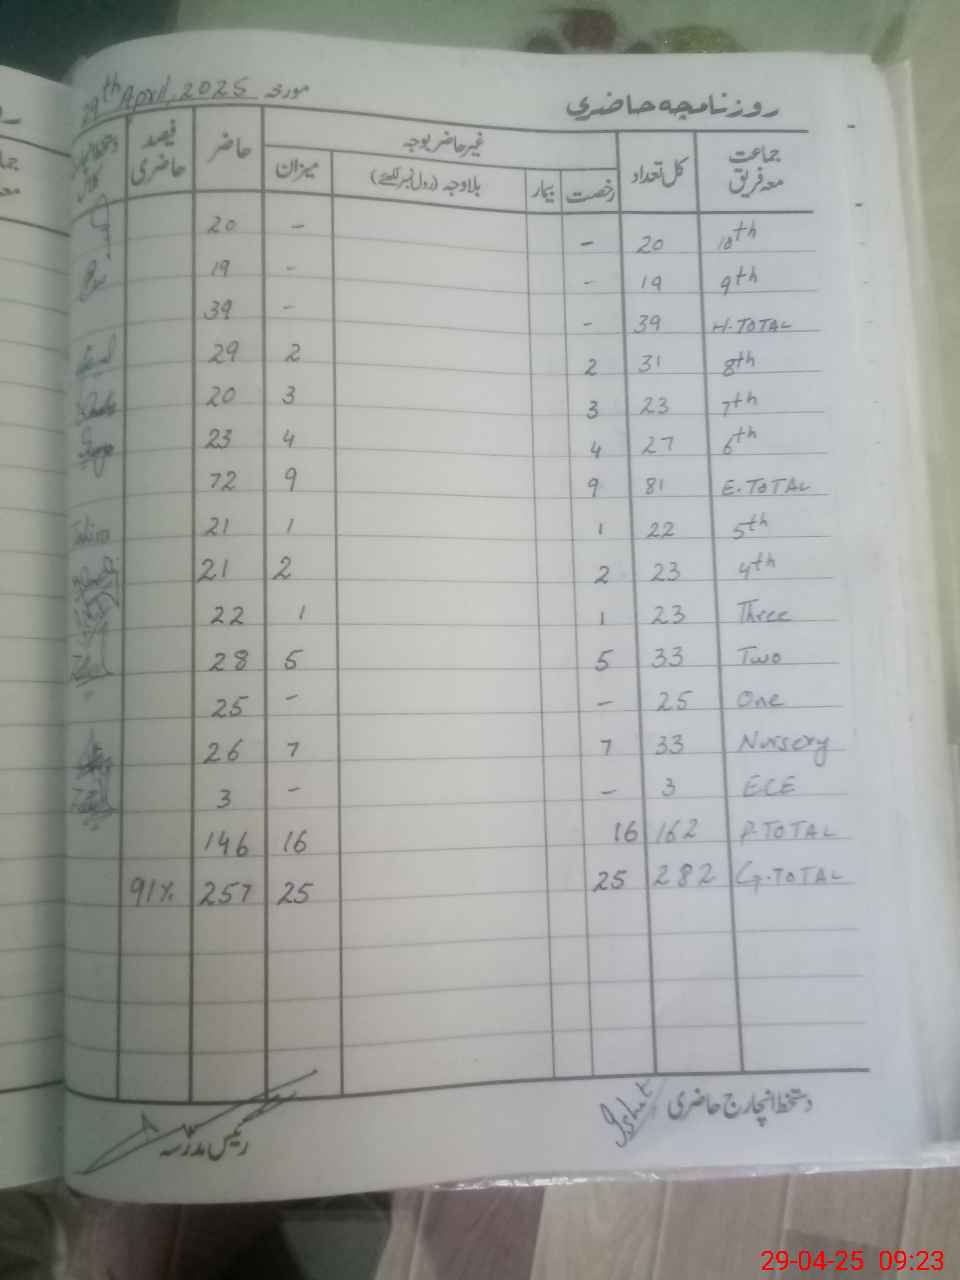 روزنامچہ حاضری مورخہ 29th April, 2025
جماعت معہ فریق | کل تعداد | غیر حاضر بوجہ | حاضر | فیصد حاضری
رخصت | بیمار | بلاوجہ (رول نمبر لکھئے) | میزان
10th 20 - - 20
9th 19 - - 19
H.TOTAL 39 - - 39
8th 31 2 2 29
7th 23 3 3 20
6th 27 4 4 23
E.TOTAL 81 9 9 72
5th 22 1 1 21 Tahira
4th 23 2 2 21
Three 23 1 1 22
Two 33 5 5 28
One 25 - - 25
Nursery 33 7 7 26
ECE 3 - - 3
P.TOTAL 162 16 16 146
G.TOTAL 282 25 25 257 91%
دستخط انچارج حاضری
رئیس مدرسہ
29-04-25 09:23